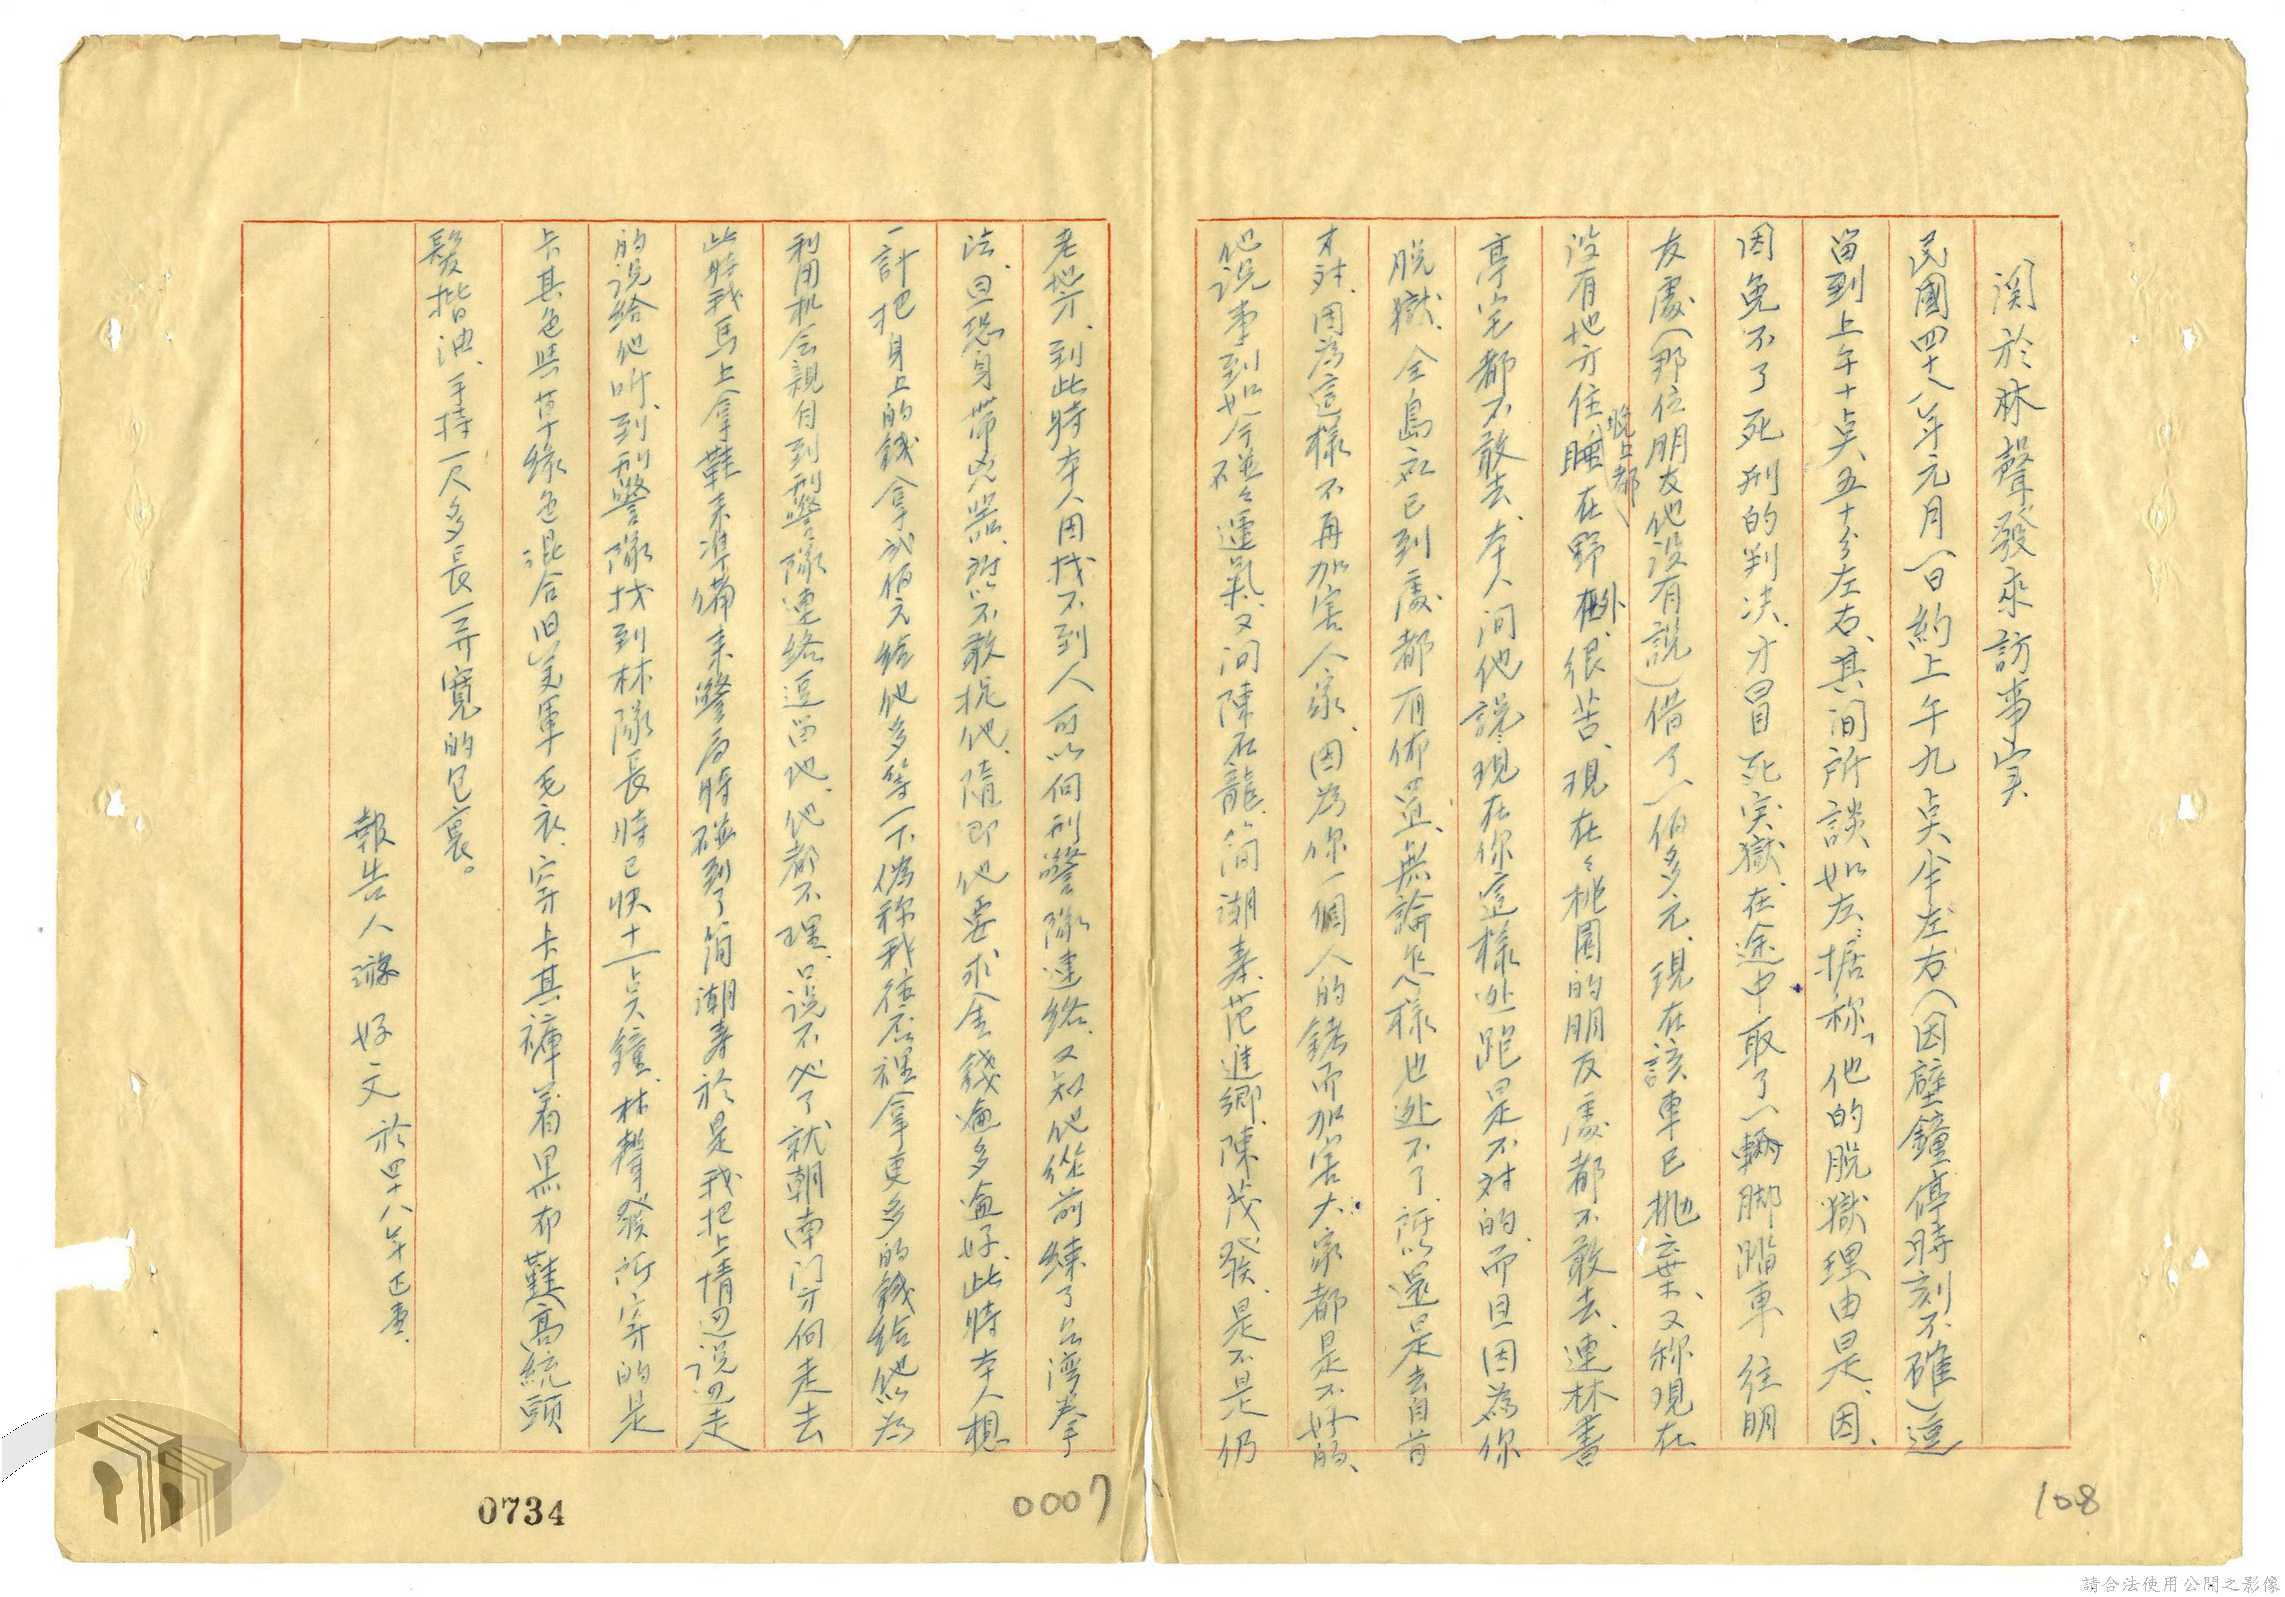 関於林聲發來訪事実
民國四十八年元月一日約上午九点半左右(因壁鐘停時刻不確)逗
留到上午十点五十分左右、其间所談如左、据称「他的脱獄理由是、因、
因免不了死刑的判决、才冒死突獄、在途中取了一輛脚踏車往朋
友處(那位朋友他没有説)借了一佰多元、現在該車已抛棄、又称現在
没有地方住、晚上都睡在野外、很苦、現在々桃園的朋友處都不敢去、連林書
亭宅都不敢去、本人问他説、現在你這樣逃跑是不对的、而且因為你
脱獄、全島都已到處都有佈置、無論怎樣也逃不了、所以還是去自首
才对、因為這樣不再加害人家、因為你一個人的錯而加害大家都是不好的、
他说事到如今碰々運氣、又问陳石龍、简潮春、范進鄉、陳茂發、是不是仍
老地方、到此時本人因找不到人可以向刑警隊連絡、又知他從前練了台湾拳
法、且恐身帶兇器、所以不敢捉他、隨即他要求金錢愈多愈好、此時本人想
一計把身上的錢拿弍佰元給他多等一下偽称我往厝裡拿更多的錢給他以為
利用机会親自到刑警隊連絡逗留他、他都不理、只说不必了就朝南门方向走去
此時我馬上拿鞋来準備来警局時碰到了简潮春於是我把上情邊说邊走
的说给他听、到刑警隊找到林隊長時已快十一点鐘、林聲發所穿的是
卡其色與草緑色混合旧美軍毛衣、穿卡其褲着黑布鞋(高統)頭
髮揩油、手持一尺多長一弄寬的包裹。
報告人 游好文 於四十八年
0734
0007
108
請合法使用公開之影像